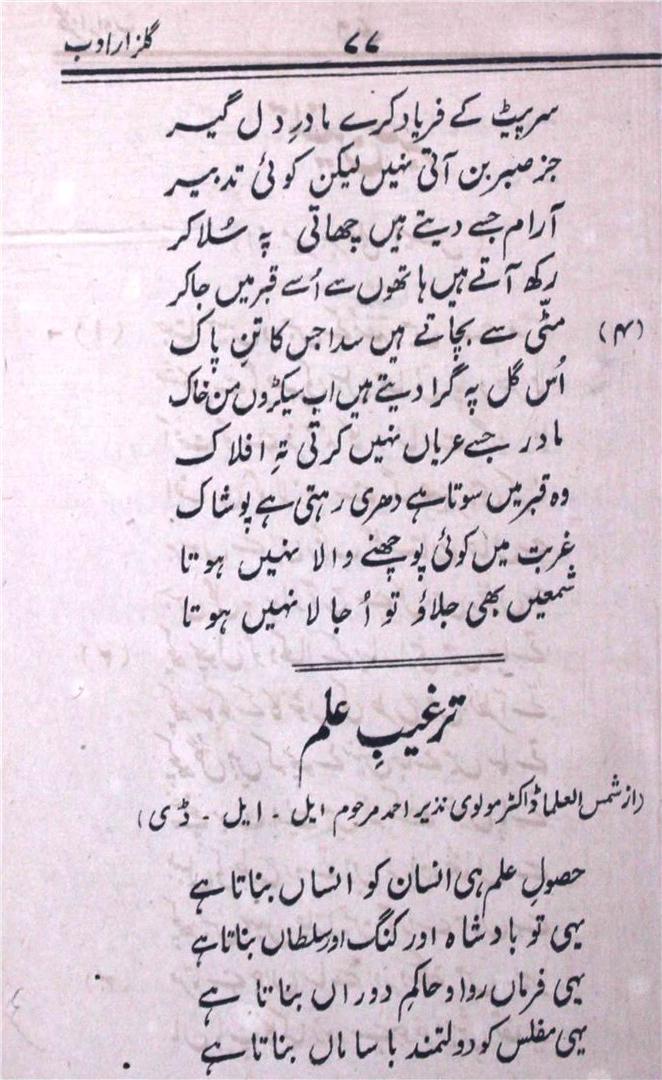 گلزار ادب
۷۷
سر پیٹ کے فریاد کرے مادرِ دل گیر
جز صبر بن آتی نہیں لیکن کوئی تدبیر
آرام جسے دیتے ہیں چھاتی پہ سُلا کر
رکھ آتے ہیں ہاتھوں سے اُسے قبر میں جا کر
(۴) مٹّی سے بچاتے ہیں سدا جس کا تنِ پاک
اُس گل پہ گرا دیتے ہیں اب سیکڑوں من خاک
مادر جسے عریاں نہیں کرتی تہِ افلاک
وہ قبر میں سوتا ہے دھری رہتی ہے پوشاک
غربت میں کوئی پوچھنے والا نہیں ہوتا
شمعیں بھی جلاؤ تو اُجالا نہیں ہوتا
ترغیبِ علم
(از شمس العلما ڈاکٹر مولوی نذیر احمد مرحوم ایل - ایل - ڈی)
حصولِ علم ہی انسان کو انساں بناتا ہے
یہی تو بادشاہ اور کنگ اور سلطاں بناتا ہے
یہی فرماں روا و حاکمِ دوراں بناتا ہے
یہی مفلس کو دولتمند با ساماں بناتا ہے